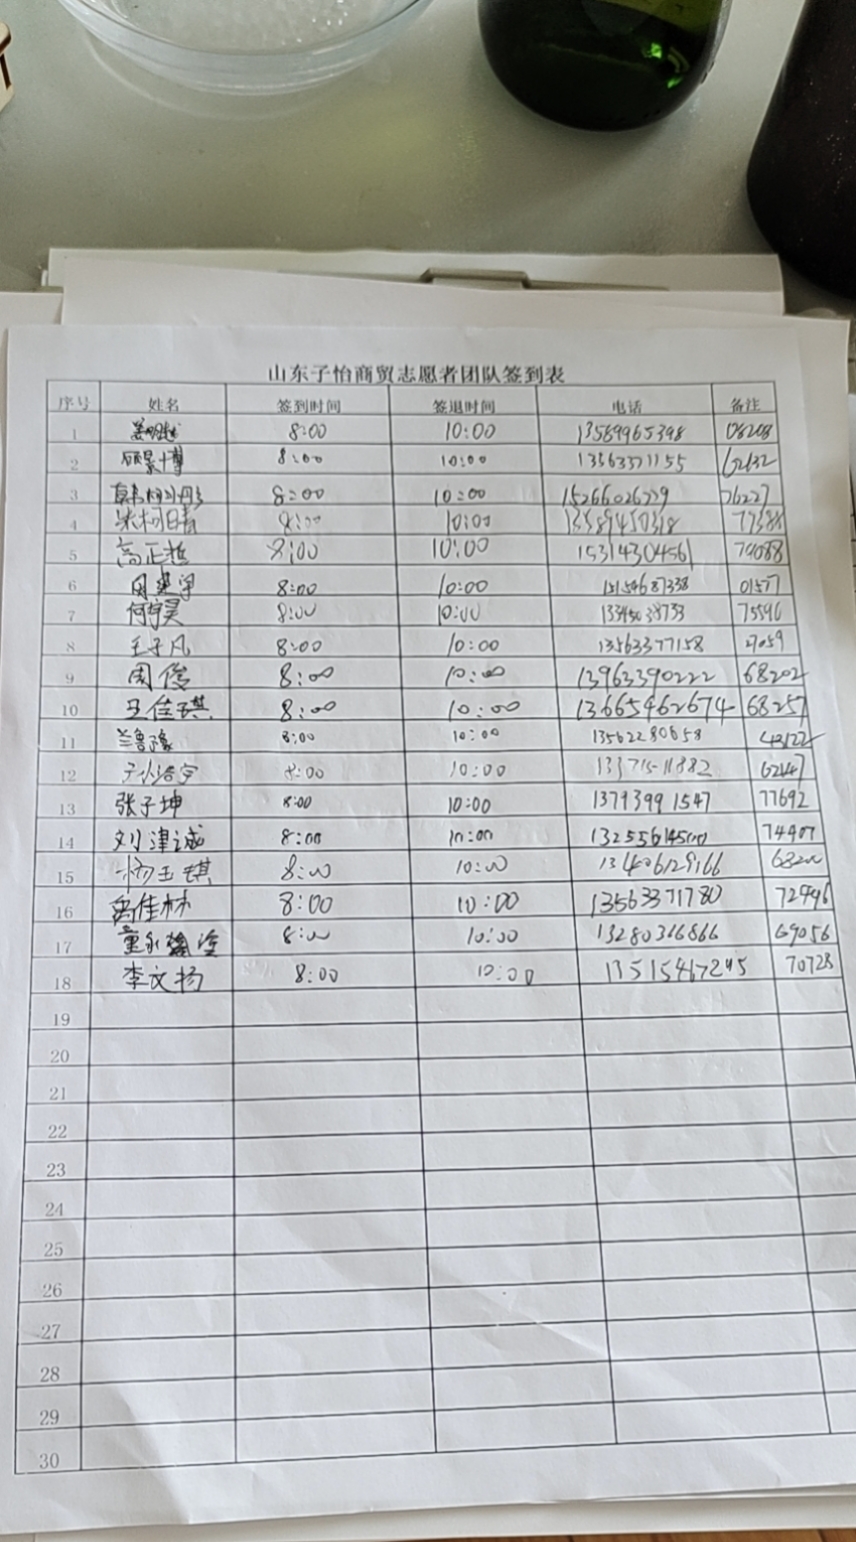 山东子怡商贸志愿者团队签到表
序号 姓名 签到时间 签退时间 电话 备注
1 8:00 10:00 13569965398 08208
2 8:00 10:00 13563371155
3 8:00 10:00 15266026779 76227
4 8:00 10:00 13589450318 77388
5 高正哲 8:00 10:00 15314304561 79088
6 周建宇 8:00 10:00 01577
7 何宇昊 8:00 10:00 75596
8 王子凡 8:00 10:00 13563377158
9 周俊 8:00 10:00 13963390222 68202
10 王佳琪 8:00 10:00 13665462674 68257
11 兰鲁豫 8:00 10:00 13562280658
12 8:00 10:00
13 张子坤 8:00 10:00 13793991547 77692
14 刘津诚 8:00 10:00 74407
15 杨玉琪 8:00 10:00 13406129166
16 8:00 10:00 13563371780 72446
17 8:00 10:00 13280326866 69056
18 李文扬 8:00 10:00 13515467295 70728
19
20
21
22
23
24
25
26
27
28
29
30